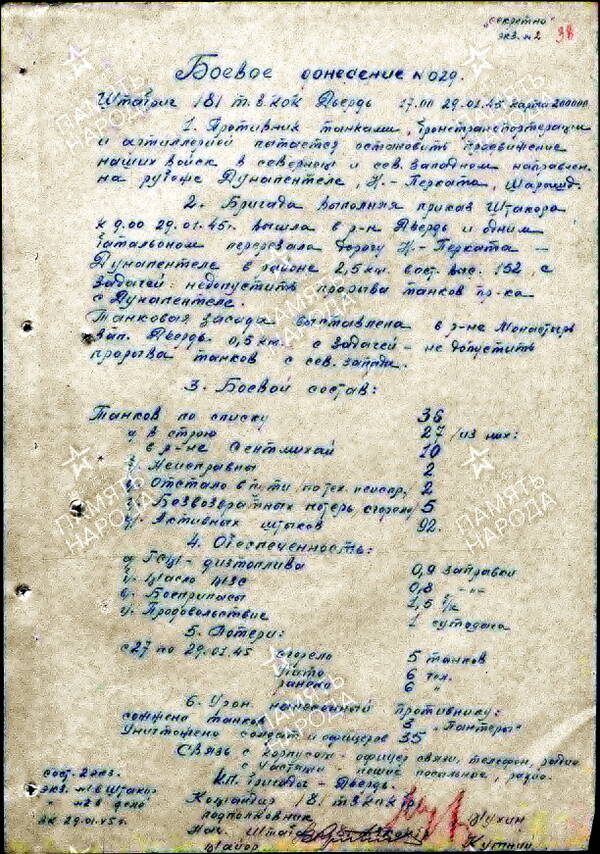 „Секретно"
экз. № 2 98
Боевое донесение № 029.
Штабриг 181 тбкок Дьердь 17.00 29.01.45 карта 200000
1. Противник танками, бронетранспортерации
и артиллерией пытается остановить продвижение
наших войск в северной и сев. западном направлен.
на рубеже Дунапентеле, Н.-Перката, Шарошд.
2. Бригада выполняя приказ Штакора
к 9.00 29.01.45г. вышла в р-н Дьердь и одним
батальоном перерезала дорогу Н.-Перката —
Дунапентеле в районе 2,5 км. вост. выс. 152, с
задачей: недопустить прорыва танков пр-ка
с Дунапентеле.
Танковая засада выставлена в р-не Монастырь
зап. Дьердь 0,5 км. с задачей - не допустить
прорыва танков с сев. запада.
3. Боевой состав:
Танков по списку 36
а/ в строю 27 /из них:
в р-не Сентмихай 10
б/ Неисправны 2
в/ Отстало в пути по тех. неиспр. 2
г/ Безвозвратных потерь сгорело 5
д/ Активных штыков 92.
4. Обеспеченность:
а/ ГСМ - дизтоплива 0,9 заправки
б/ Масло 0,8 -"-
в/ Боеприпасы 1,5 б/к
г/ Продовольствие 1 сутодача
5. Потери:
с 27 по 29.01.45 сгорело 5 танков
убито 6 чел.
ранено 6 "
6. Урон нанесенный противнику:
сожжено танков 3 „Пантеры"
Уничтожено солдат и офицеров 35
Связь с корпусом - офицер связи, телефон, радио
с частями - пешие посыльные, радио.
К.П. бригады - Дьердь.
сост. 2 экз.
экз. №1 в Штакор
" №2 в дело
29.01.45г.
Командир 181 тбкок бр
подполковник
Нач. Штаба
майор
ПАМЯТЬ
НАРОДА
ПАМЯТЬ
НАРОДА
ПАМЯТЬ
НАРОДА
ПАМЯТЬ
НАРОДА
ПАМЯТЬ
НАРОДА
ПАМЯТЬ
НАРОДА